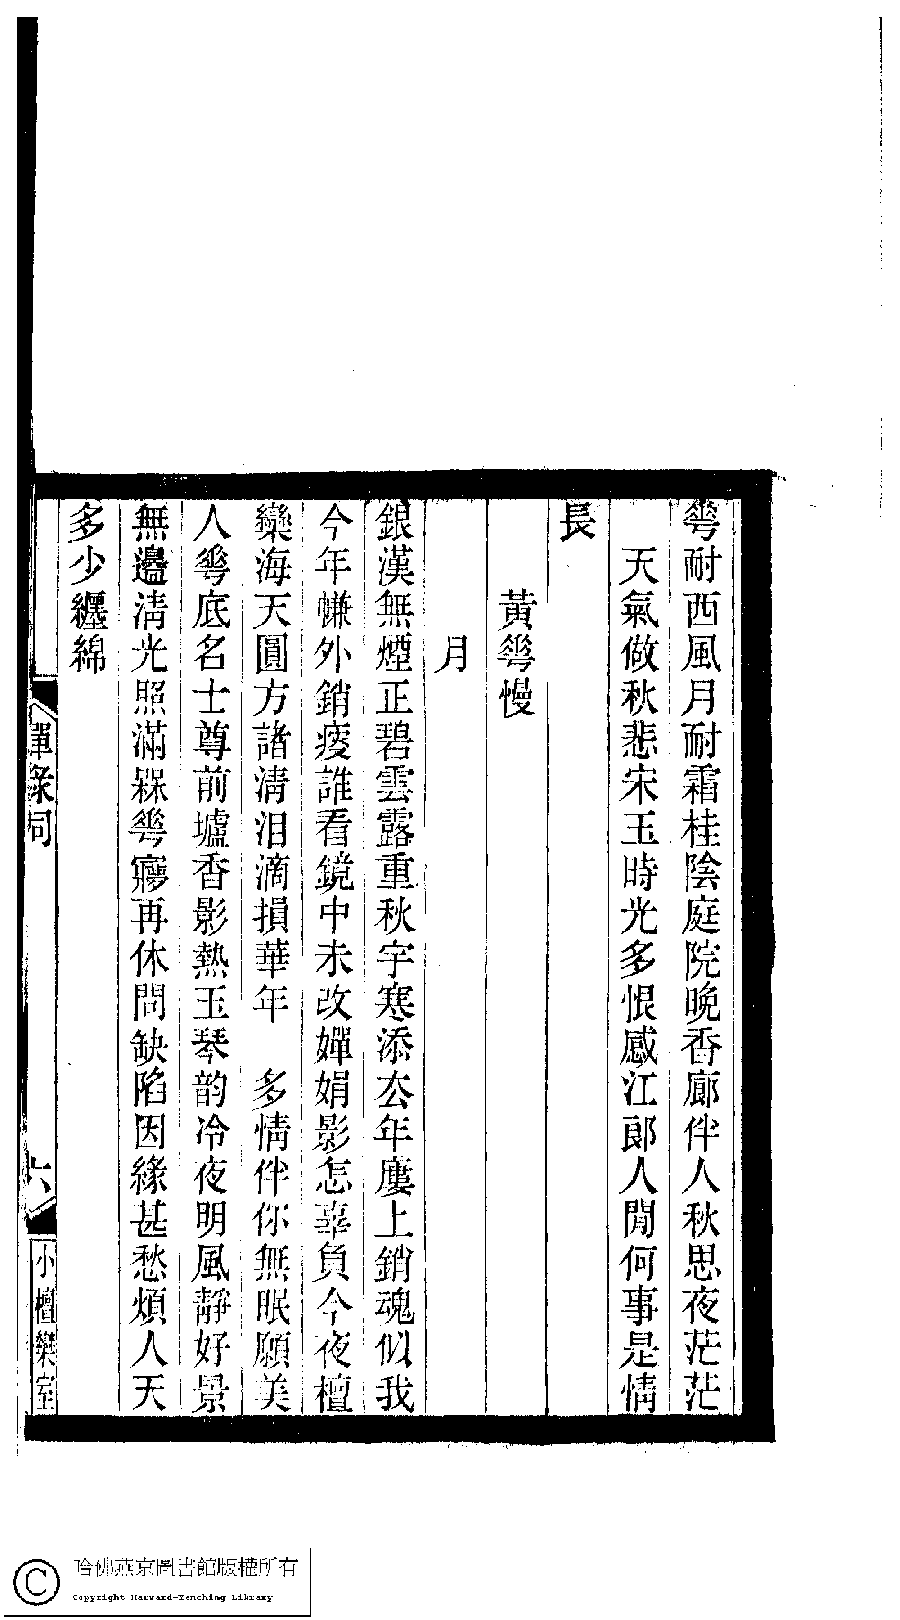 蕚耐西風月耐霜桂陰庭院晚香廊伴人秋思夜茫茫
天氣做秋悲宋玉時光多恨感江郎人閒何事是情
長
黃蕚慢
月
銀漢無煙正碧雲露重秋宇寒添厺年廔上銷魂似我
今年㡘外銷痠誰看鏡中未改嬋娟影怎辜負今夜檀
欒海天圓方諸淸泪滴損華年　多情伴你無眠願美
人蕚底名士尊前壚香影熱玉琴韵冷夜明風靜好景
無邊淸光照滿槑蕚㝱再休問缺陷因緣甚愁煩人天
多少纏綿
六
小檀欒室
哈佛燕京圖書館版權所有
Copyright Harvard-Yenching Library